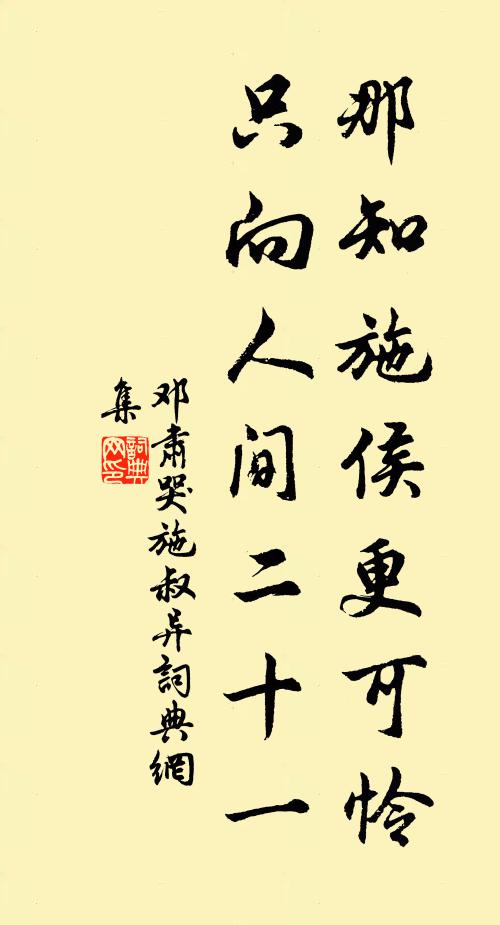 那知施侯更可怜
只向人间二十一
邓肃哭施叔异詞典網
集
詞典网印